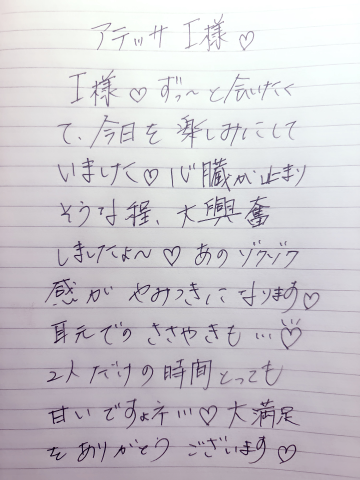 アテッサ I様♡
I様♡ずっ〜と会いたく
て、今日を楽しみにして
いました♡心臓が止まり
そうな程、大興奮
しましたよ〜♡あのゾクゾク
感がやみつきになります♡
耳元でのささやきも…♡
2人だけの時間とっても
甘いですよネ…♡大満足
をありがとうございます♡